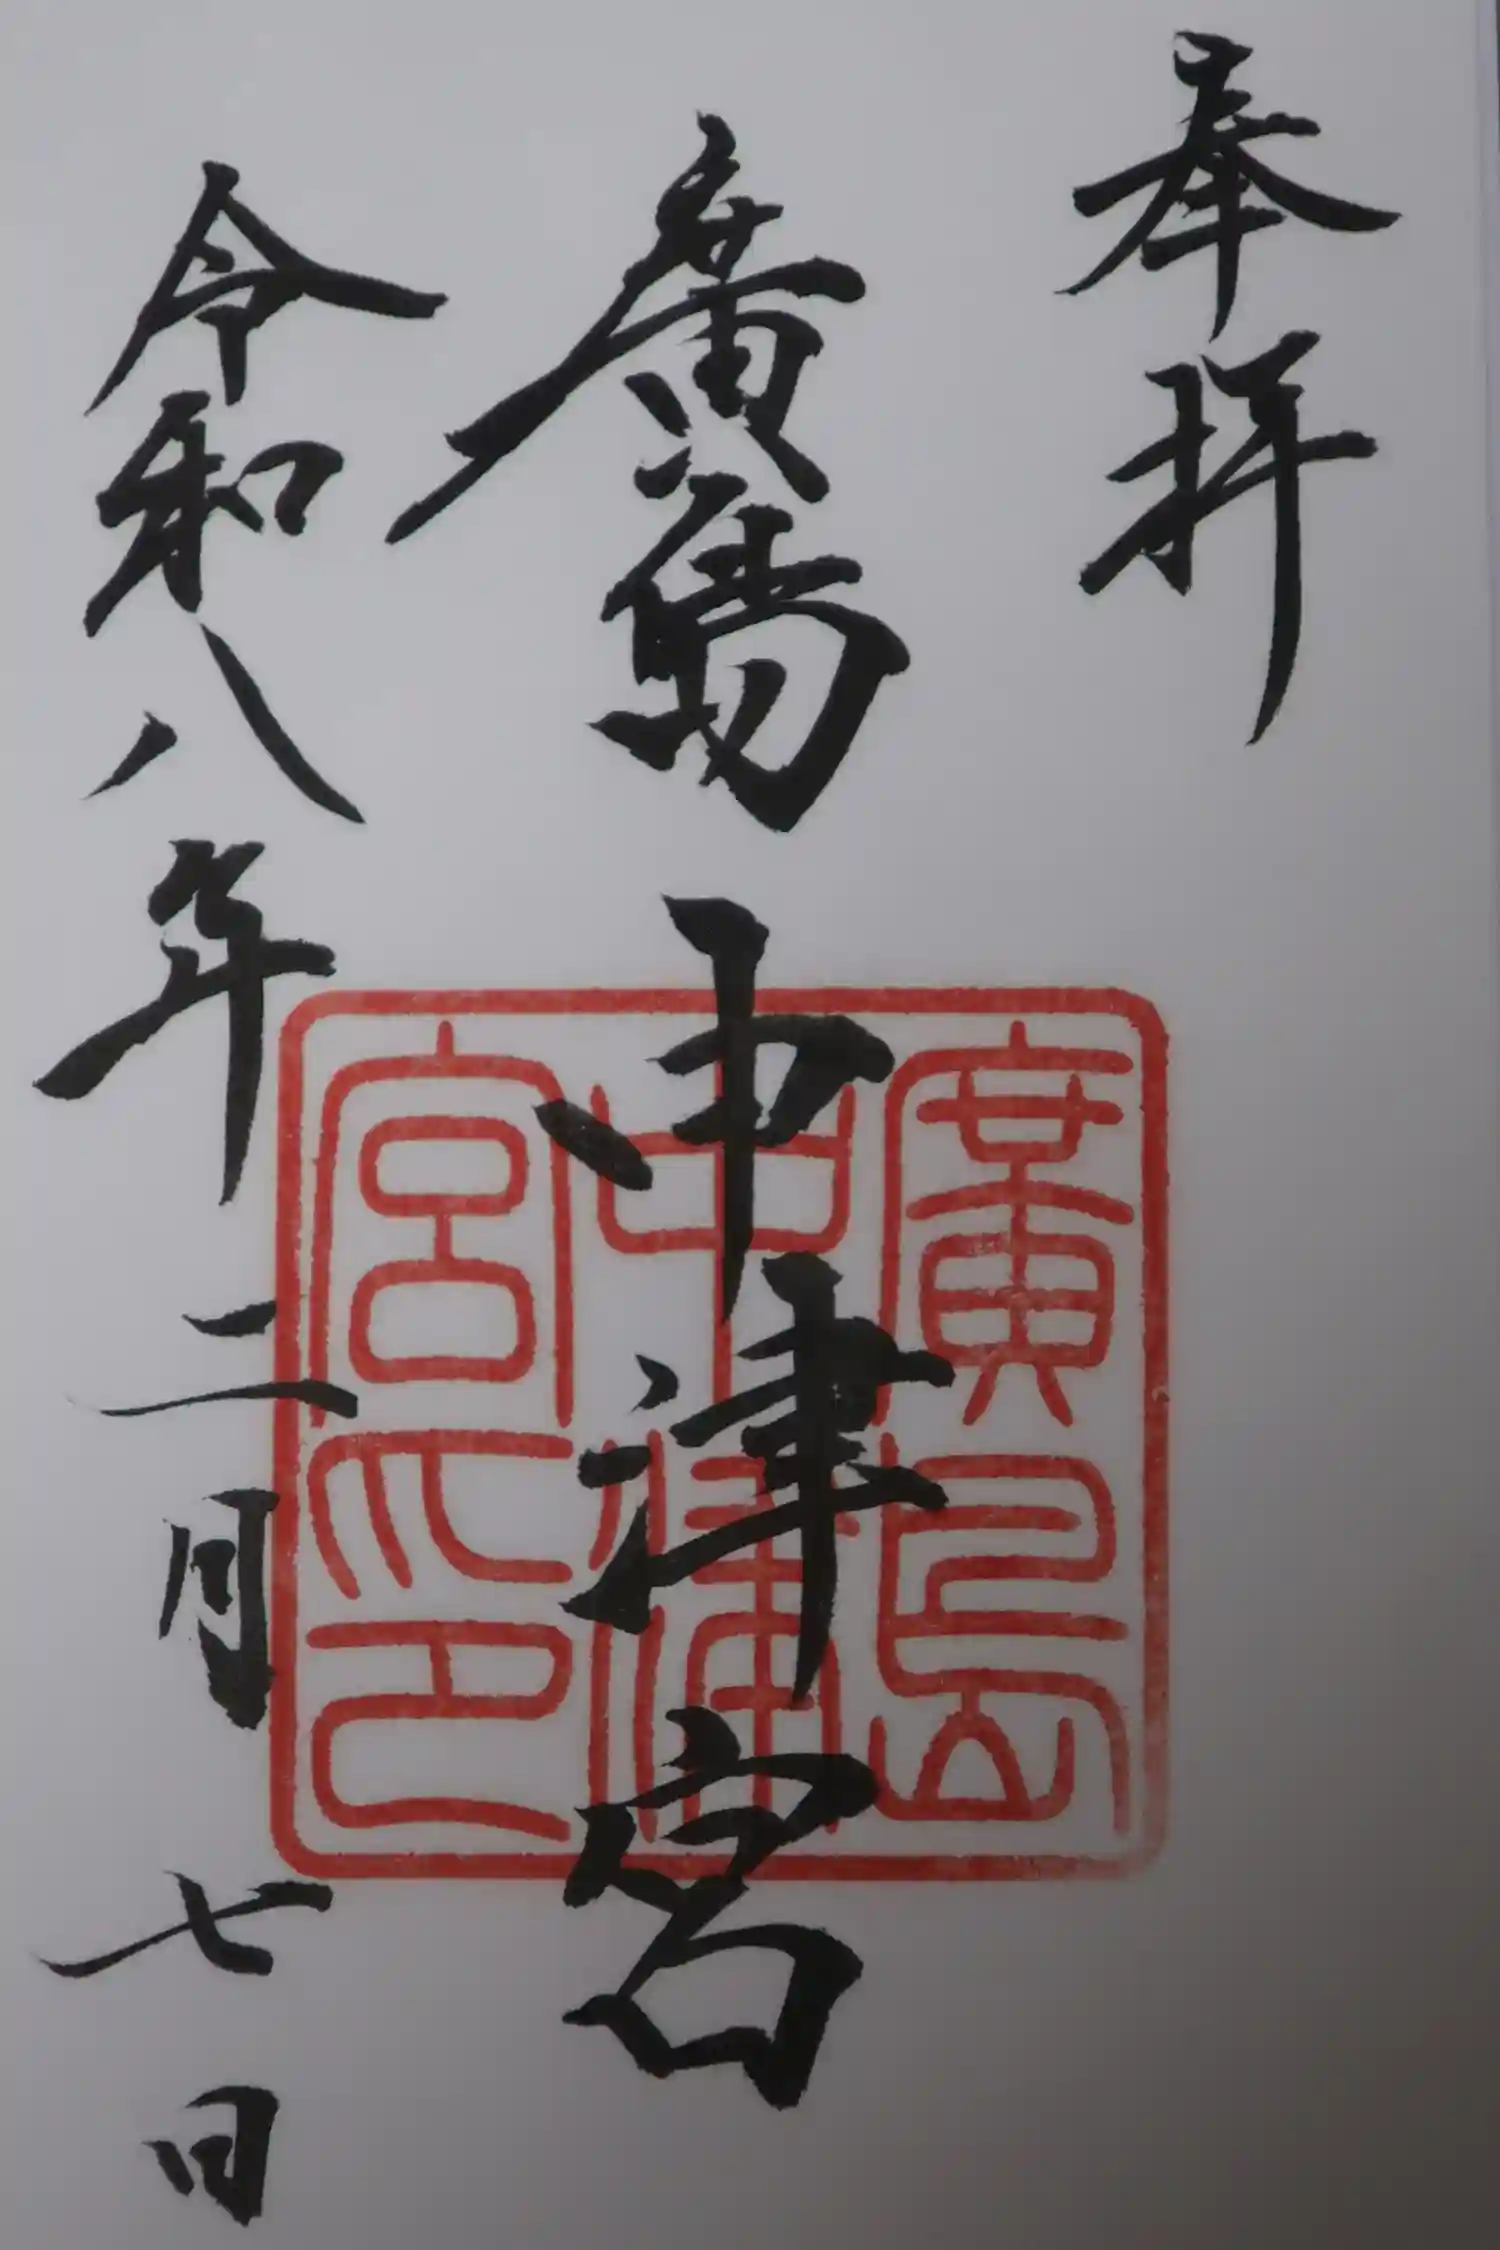 奉拝
廣島中津宮
令和八年二月七日
廣島
中津
宮之印